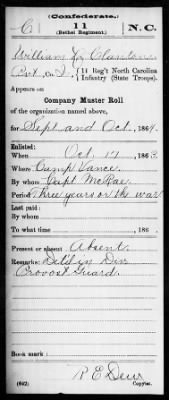 (Confederate.)
C 11 N.C.
(Bethel Regiment.)
William J. Clanton
Pvt, Co. I, 11 Reg't North Carolina
Infantry (State Troops).
Appears on
Company Muster Roll
of the organization named above,
for Sept and Oct, 1864.
Enlisted:
When Oct 17, 1863.
Where Camp Vance
By whom Capt McRae
Period Three years or the war
Last paid:
By whom
To what time , 186 .
Present or absent Absent
Remarks: Detld in Div
Provost Guard.
Book mark:
R E Dew
(642) Copyist.